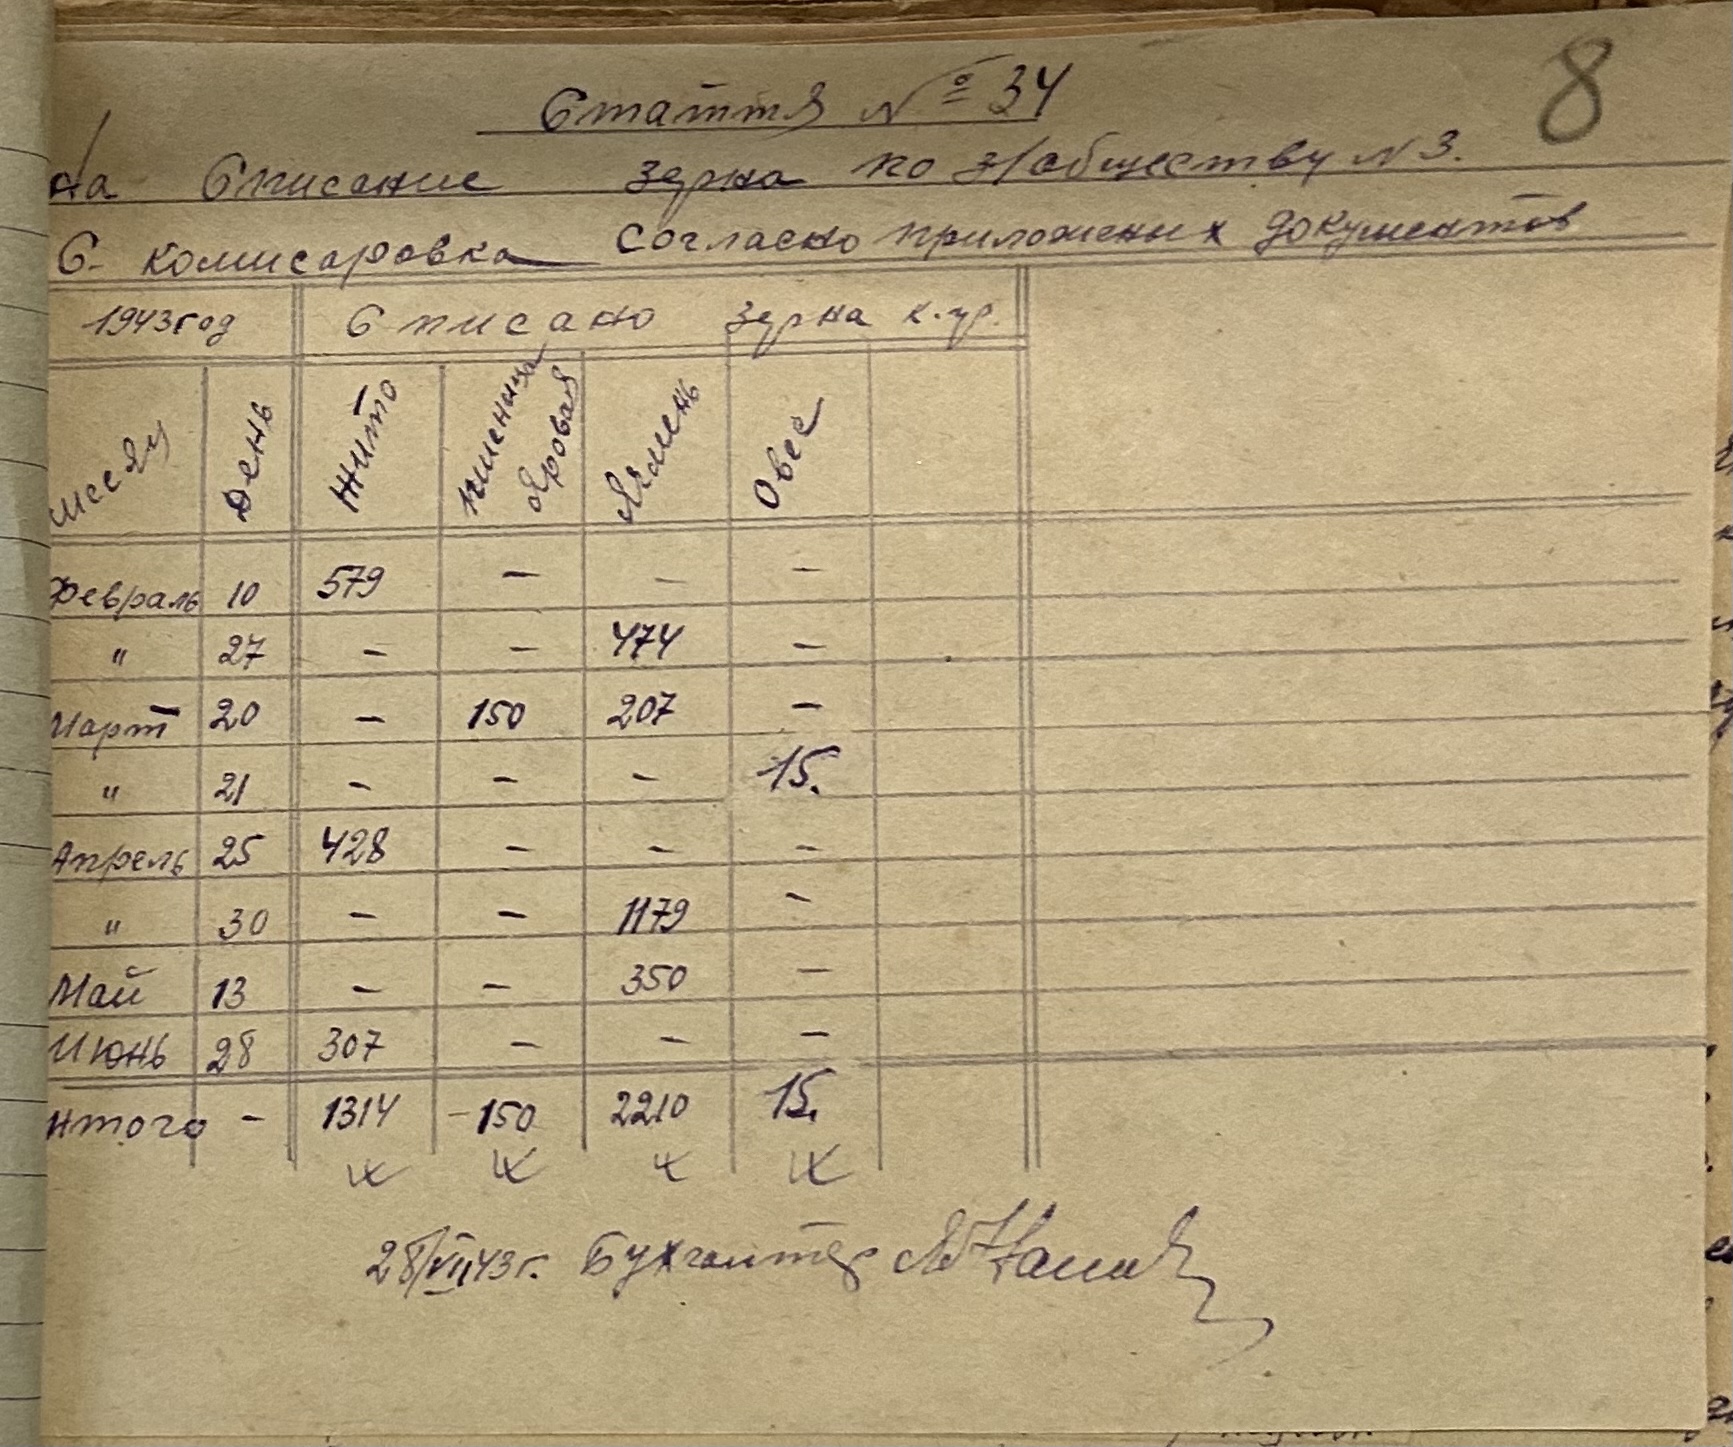 8
Стаття № 34
На Списание зерна по з/обществу N 3.
С. Комисаровка Согласно приложеных документов
1943 год Списано зерна к.гр.
Месяц День Жито пшеница Яровая Ячмень Овес
Февраль 10 579 — — —
" 27 — — 474 —
Март 20 — 150 207 —
" 21 — — — 15.
Апрель 25 428 — — —
" 30 — — 1179 —
Май 13 — — 350 —
Июнь 28 307 — — —
Итого — 1314 — 150 2210 15.
28/VII 43 г. Бухгалтер